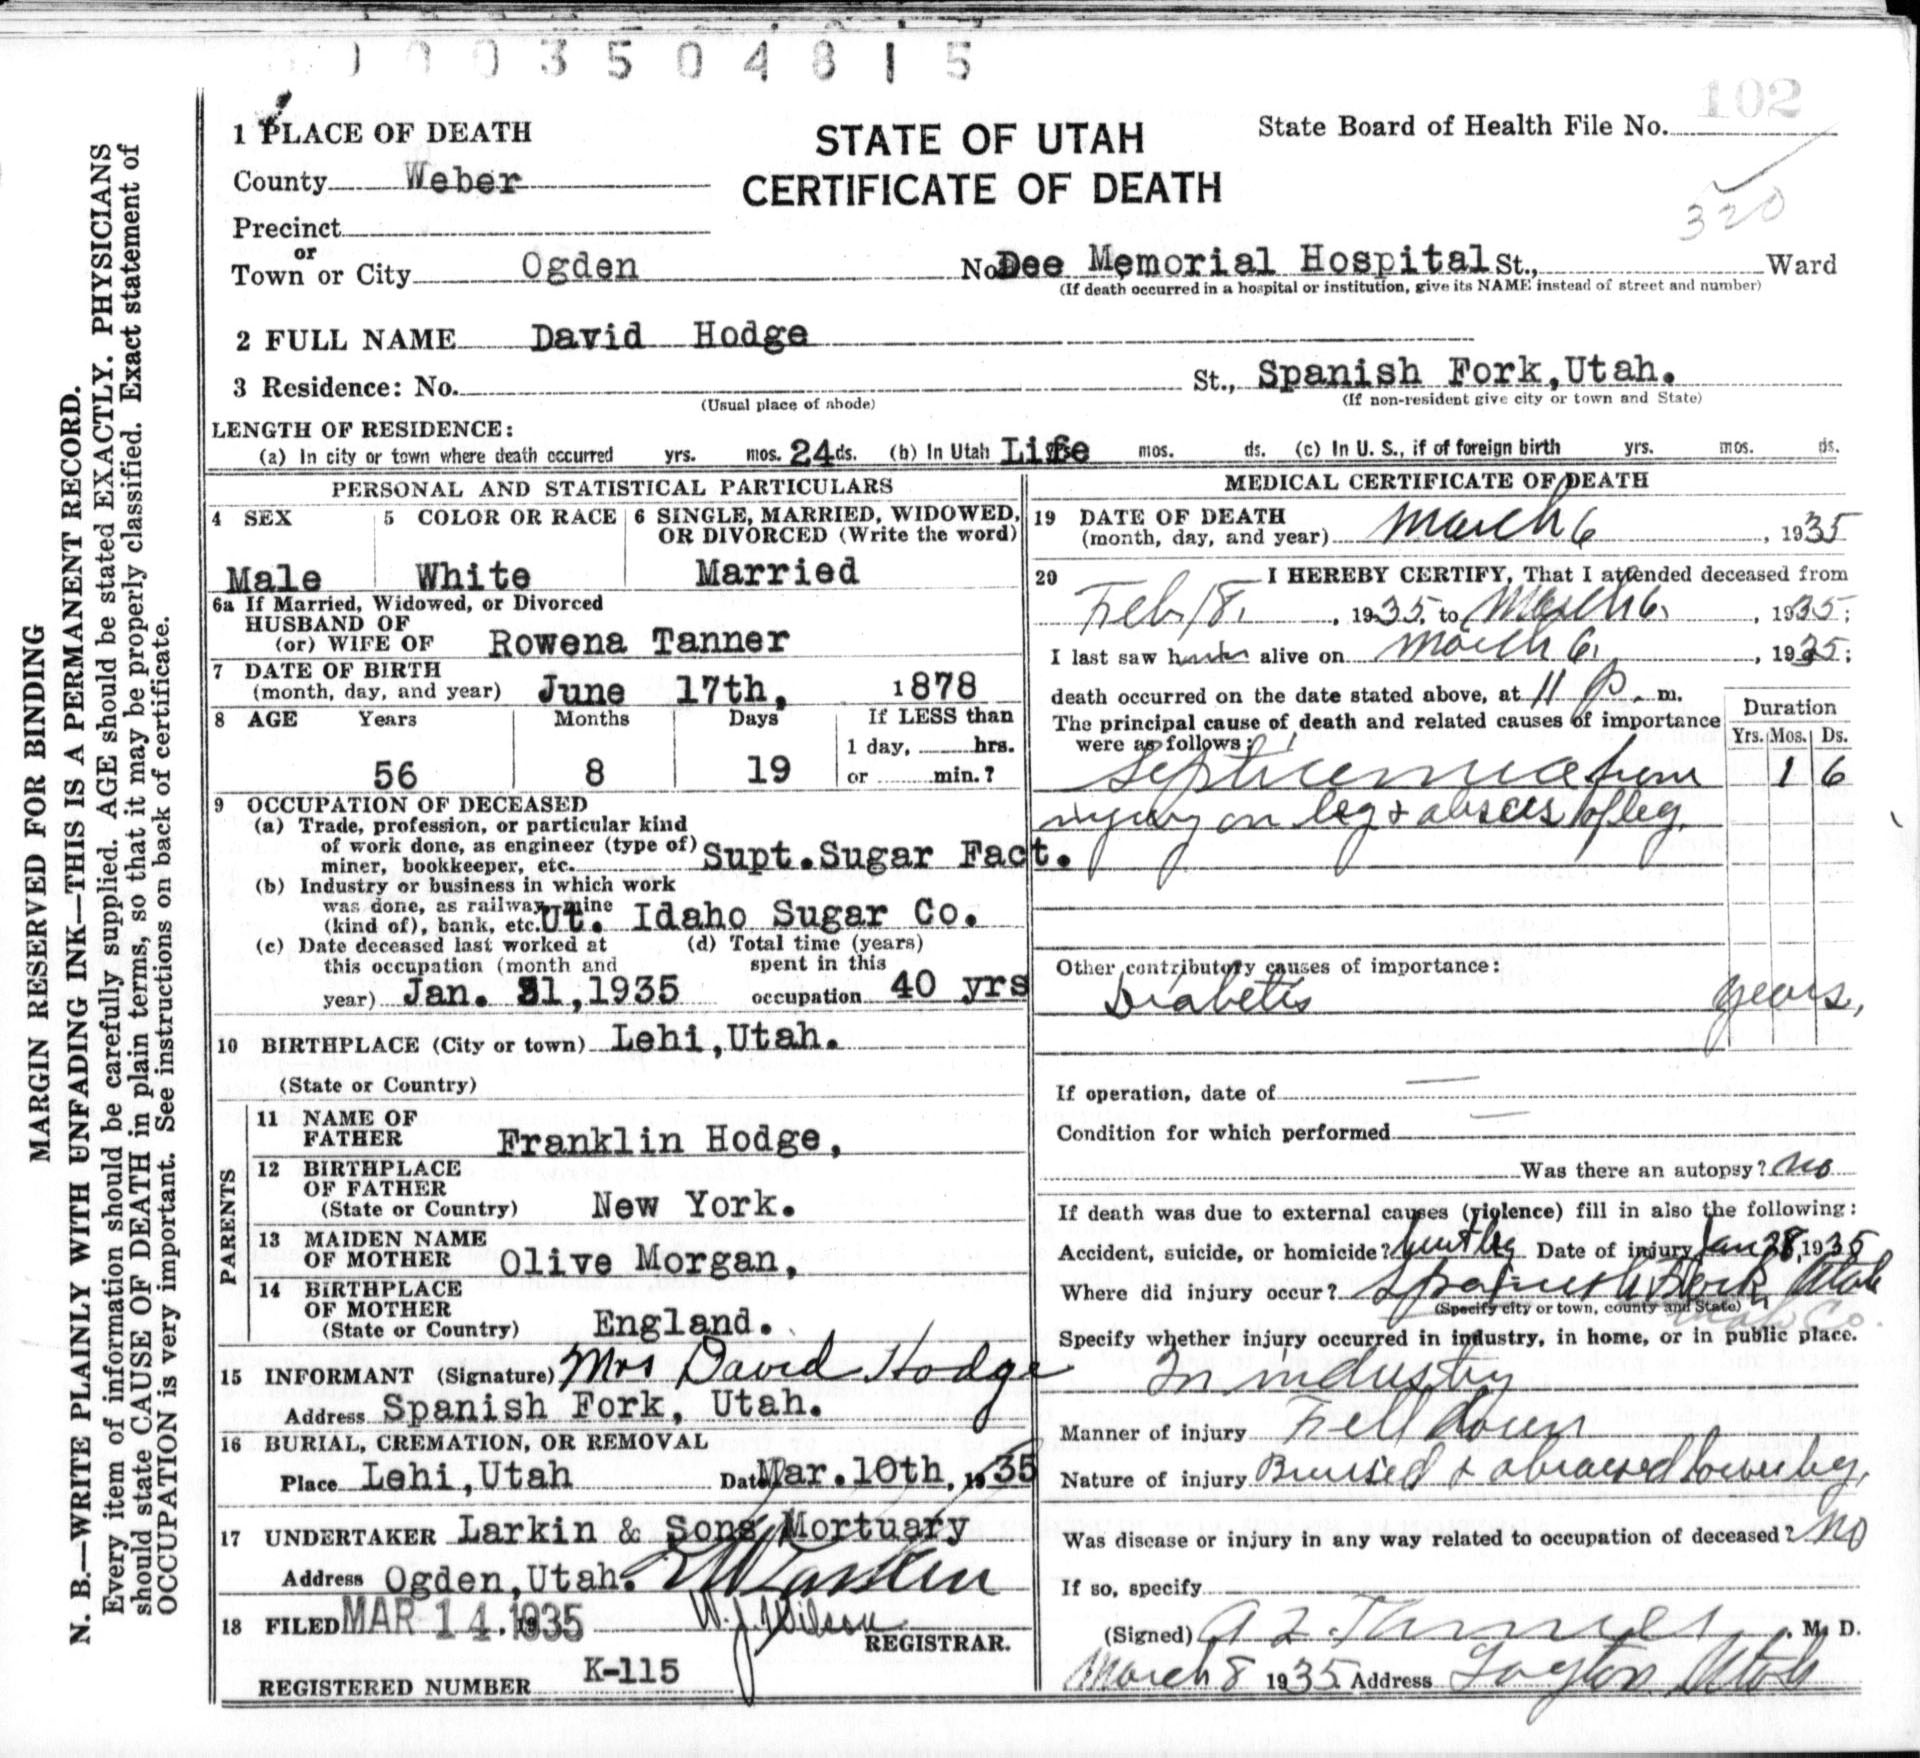 0003504815
102
1 PLACE OF DEATH
STATE OF UTAH
CERTIFICATE OF DEATH
State Board of Health File No.
320
County Weber
Precinct
or
Town or City Ogden No. Dee Memorial Hospital St., Ward
(If death occurred in a hospital or institution, give its NAME instead of street and number)
2 FULL NAME David Hodge
3 Residence: No. St., Spanish Fork, Utah.
(Usual place of abode) (If non-resident give city or town and State)
LENGTH OF RESIDENCE:
(a) In city or town where death occurred yrs. mos. 24 ds. (b) In Utah Life mos. ds. (c) In U. S., if of foreign birth yrs. mos. ds.
PERSONAL AND STATISTICAL PARTICULARS
4 SEX
Male
5 COLOR OR RACE
White
6 SINGLE, MARRIED, WIDOWED,
OR DIVORCED (Write the word)
Married
6a If Married, Widowed, or Divorced
HUSBAND OF
(or) WIFE OF Rowena Tanner
7 DATE OF BIRTH
(month, day, and year) June 17th, 1878
8 AGE Years Months Days If LESS than
1 day, hrs.
56 8 19 or min.?
9 OCCUPATION OF DECEASED
(a) Trade, profession, or particular kind
of work done, as engineer (type of)
miner, bookkeeper, etc. Supt. Sugar Fact.
(b) Industry or business in which work
was done, as railway, mine
(kind of), bank, etc. Ut. Idaho Sugar Co.
(c) Date deceased last worked at
this occupation (month and
year) Jan. 31, 1935
(d) Total time (years)
spent in this
occupation 40 yrs
10 BIRTHPLACE (City or town) Lehi, Utah.
(State or Country)
PARENTS
11 NAME OF
FATHER Franklin Hodge,
12 BIRTHPLACE
OF FATHER
(State or Country) New York.
13 MAIDEN NAME
OF MOTHER Olive Morgan,
14 BIRTHPLACE
OF MOTHER
(State or Country) England.
15 INFORMANT (Signature) Mrs David Hodge
Address Spanish Fork, Utah.
16 BURIAL, CREMATION, OR REMOVAL
Place Lehi, Utah Date Mar. 10th, 1935
17 UNDERTAKER Larkin & Sons Mortuary
Address Ogden, Utah. Larkin
18 FILED MAR 14 1935 W. J. Wilson
REGISTRAR.
REGISTERED NUMBER K-115
MEDICAL CERTIFICATE OF DEATH
19 DATE OF DEATH
(month, day, and year) March 6, 1935
20 I HEREBY CERTIFY, That I attended deceased from
Feb. 18, 1935, to March 6, 1935;
I last saw h alive on March 6, 1935;
death occurred on the date stated above, at 11 P. m.
The principal cause of death and related causes of importance
were as follows:
Duration
Yrs. Mos. Ds.
Septicemia from 1 6
injury on leg & abscess of leg.
Other contributory causes of importance:
Diabetis years,
If operation, date of —
Condition for which performed —
Was there an autopsy? no
If death was due to external causes (violence) fill in also the following:
Accident, suicide, or homicide? hurt leg Date of injury Jan 28, 1935
Where did injury occur? Spanish Fork, Utah
(Specify city or town, county and State)
Utah Co.
Specify whether injury occurred in industry, in home, or in public place.
In industry
Manner of injury Fell down
Nature of injury Bruised & abraised lower leg,
Was disease or injury in any way related to occupation of deceased? no
If so, specify
(Signed) M. D.
March 8 1935. Address Layton Utah
MARGIN RESERVED FOR BINDING
N. B.—WRITE PLAINLY WITH UNFADING INK—THIS IS A PERMANENT RECORD.
Every item of information should be carefully supplied. AGE should be stated EXACTLY. PHYSICIANS
should state CAUSE OF DEATH in plain terms, so that it may be properly classified. Exact statement of
OCCUPATION is very important. See instructions on back of certificate.